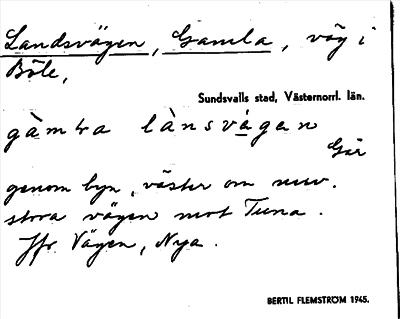 Landsvägen, Gamla, väg i
Böle,
Sundsvalls stad, Västernorrl. län.
gàmɬa lànsvàgen
Går
genom byn, väster om nuv.
stora vägen mot Tuna.
Jfr Vägen, Nya.
BERTIL FLEMSTRÖM 1945.